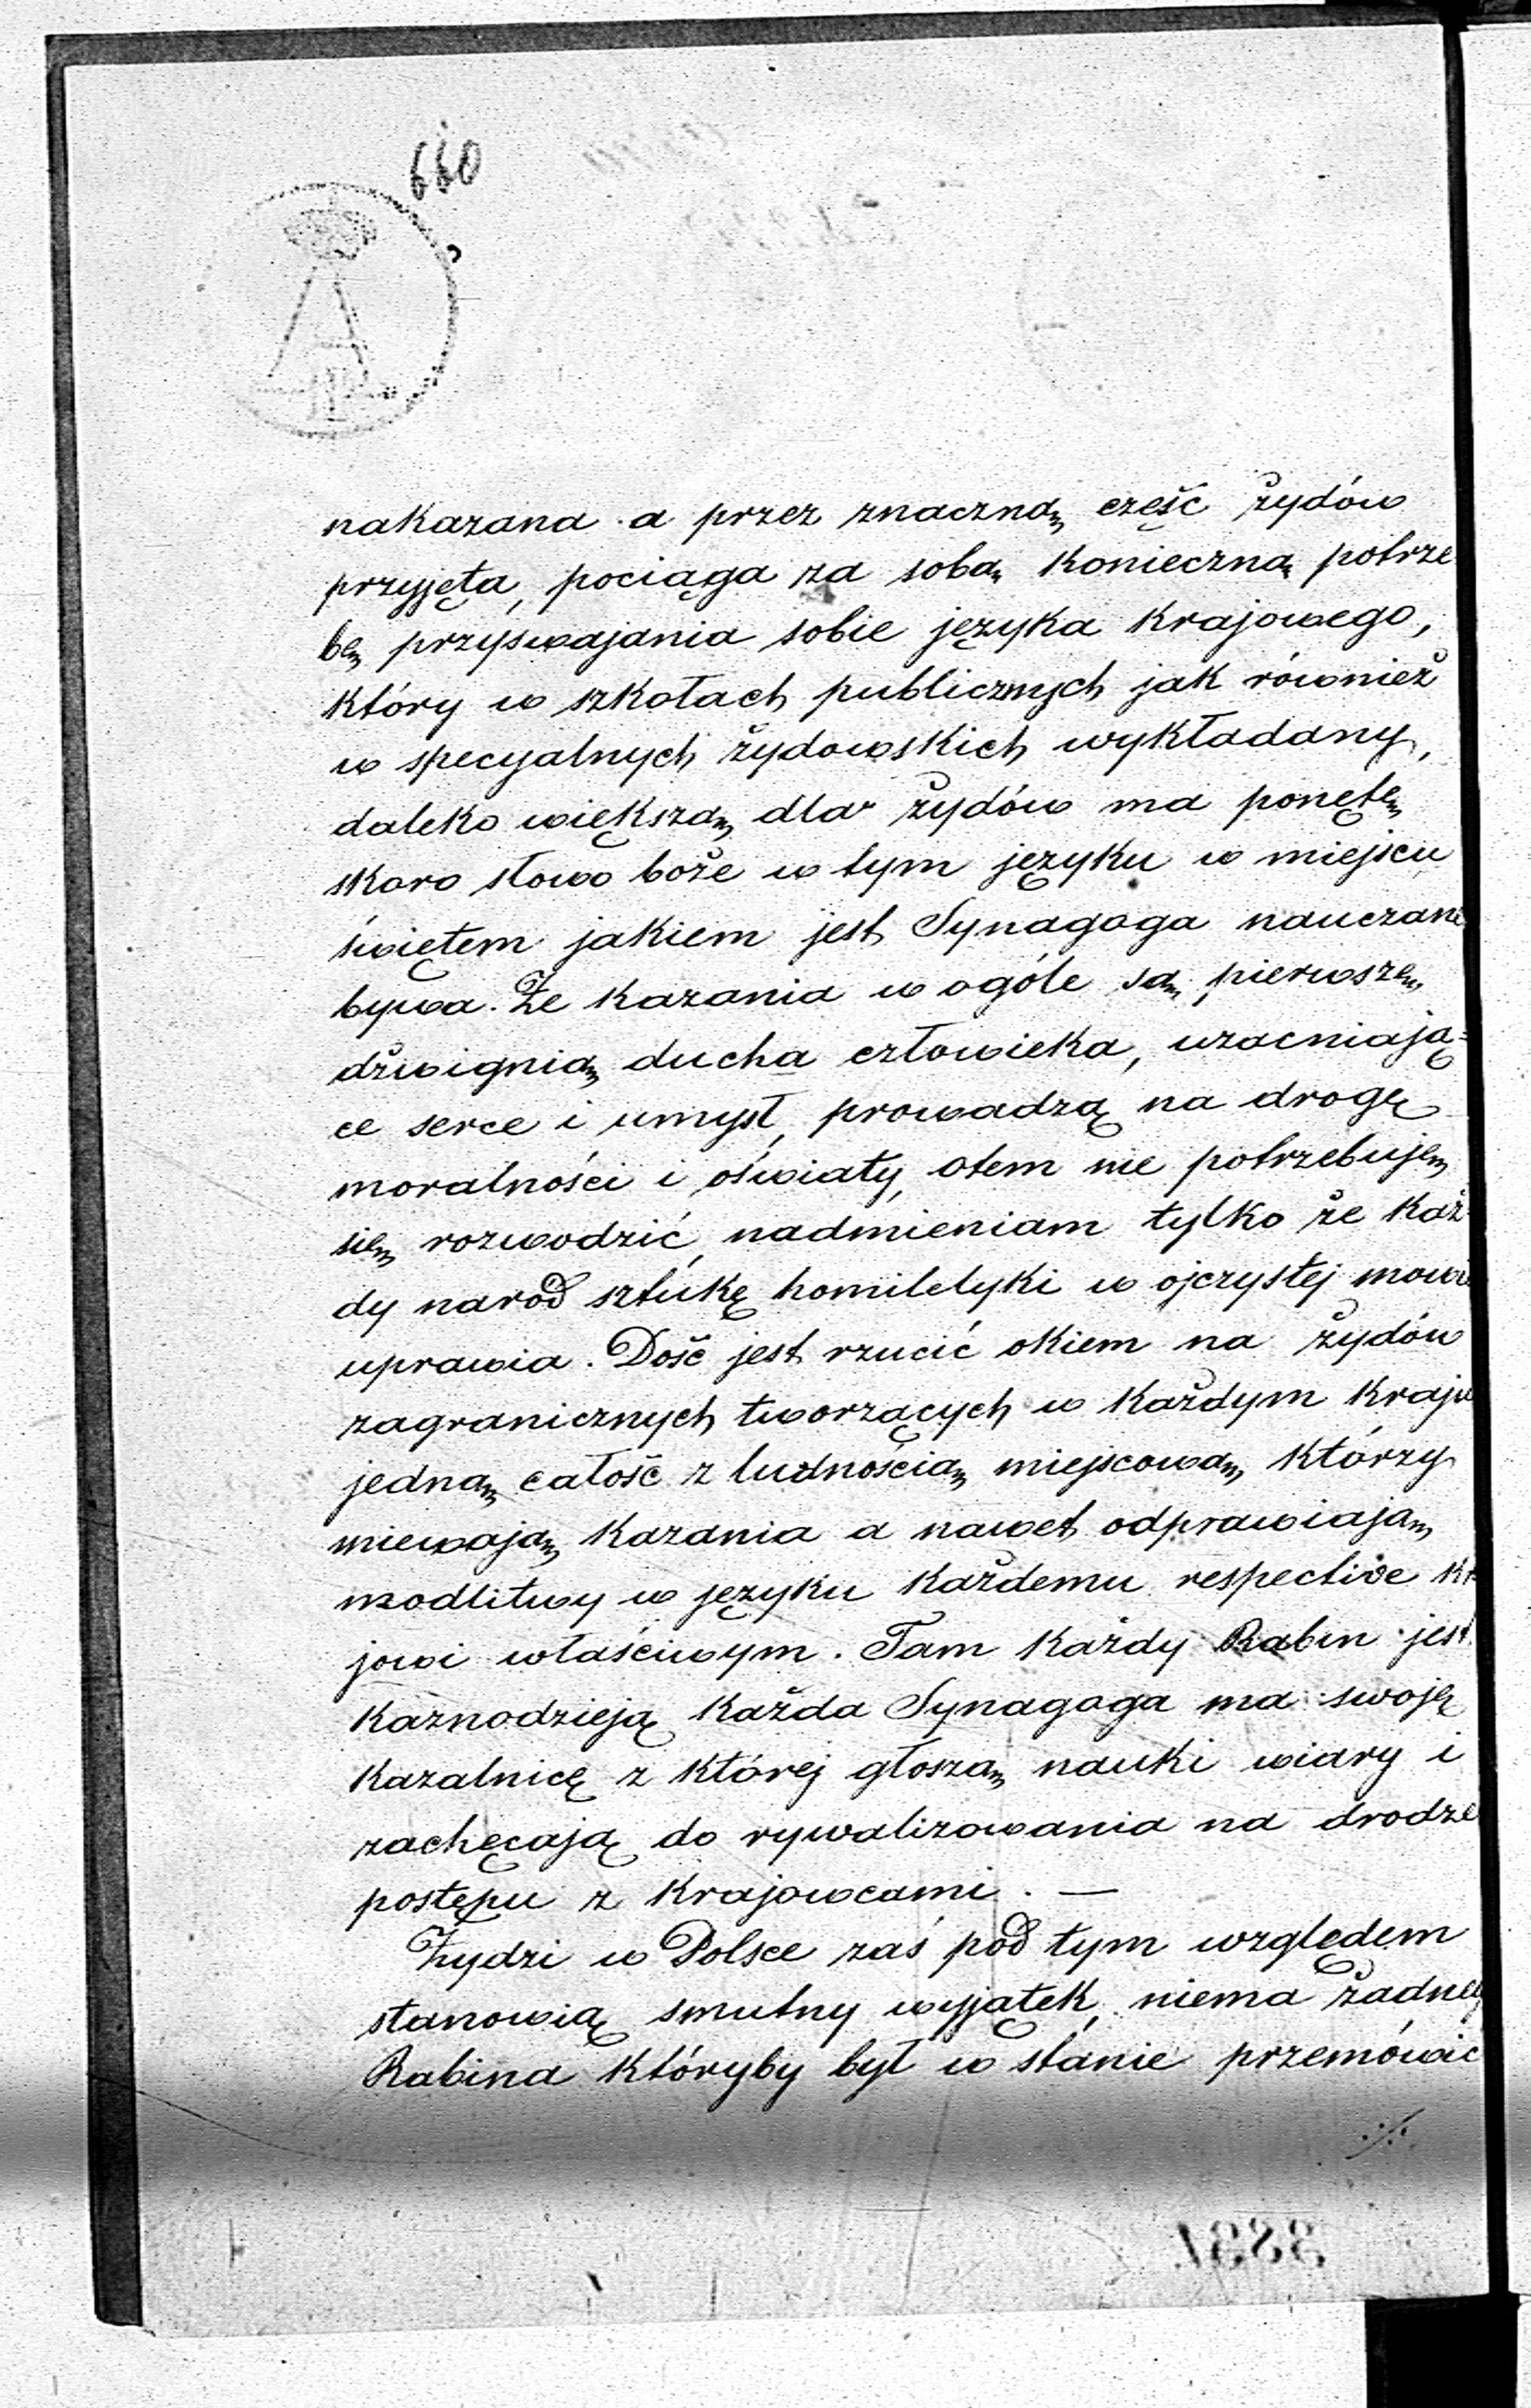 660
nakazana a przez znaczną część żydów
przyjęta, pociąga za sobą konieczną potrze
bę przyswajania sobie języka krajowego,
który w szkołach publicznych jak również
w specyalnych żydowskich wykładany,
daleko większą dla żydów ma ponętę
skoro słowo boże w tym języku w miejscu
świętem jakiem jest Synagoga nauczane
bywa. Że kazania w ogóle są pierwszą
dźwignią ducha człowieka, uzacniają=
ce serce i umysł, prowadzą na drogę
moralności i oświaty, otem nie potrzebuję
się rozwodzić, nadmieniam tylko że każ=
dy naród sztukę homiletyki w ojczystej mowie
uprawia. Dość jest rzucić okiem na żydów
zagranicznych tworzących w każdym kraju
jedną całość z ludnością miejscową, którzy
miewają kazania a nawet odprawiają
modlitwy w języku każdemu respective kra
jowi właściwym. Tam każdy Rabin jest
kaznodzieją każda Synagoga ma swoję
kazalnicę z której głoszą nauki wiary i
zachęcają do rywalizowania na drodze
postępu z krajowcami. —
Żydzi w Polsce zaś pod tym względem
stanowią smutny wyjątek, niema żadnego
Rabina któryby był w stanie przemówić
./.